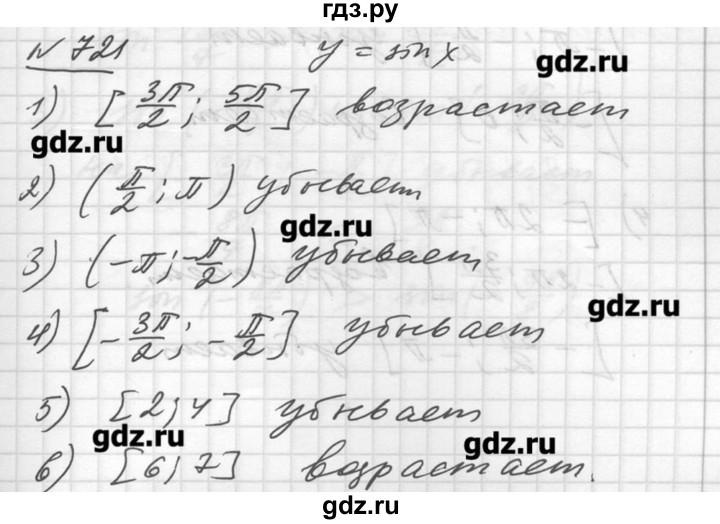 гдз.ру
№ 721 y = sin x
gdz.ru
1) [3π/2; 5π/2] возрастает
gdz.ru
2) (π/2; π) убывает
gdz.ru
3) (-π; -π/2) убывает
gdz.ru
4) [-3π/2; -π/2] убывает
5) [2; 4] убывает
gdz.ru gdz.ru
6) [6; 7] возрастает.
gdz.ru